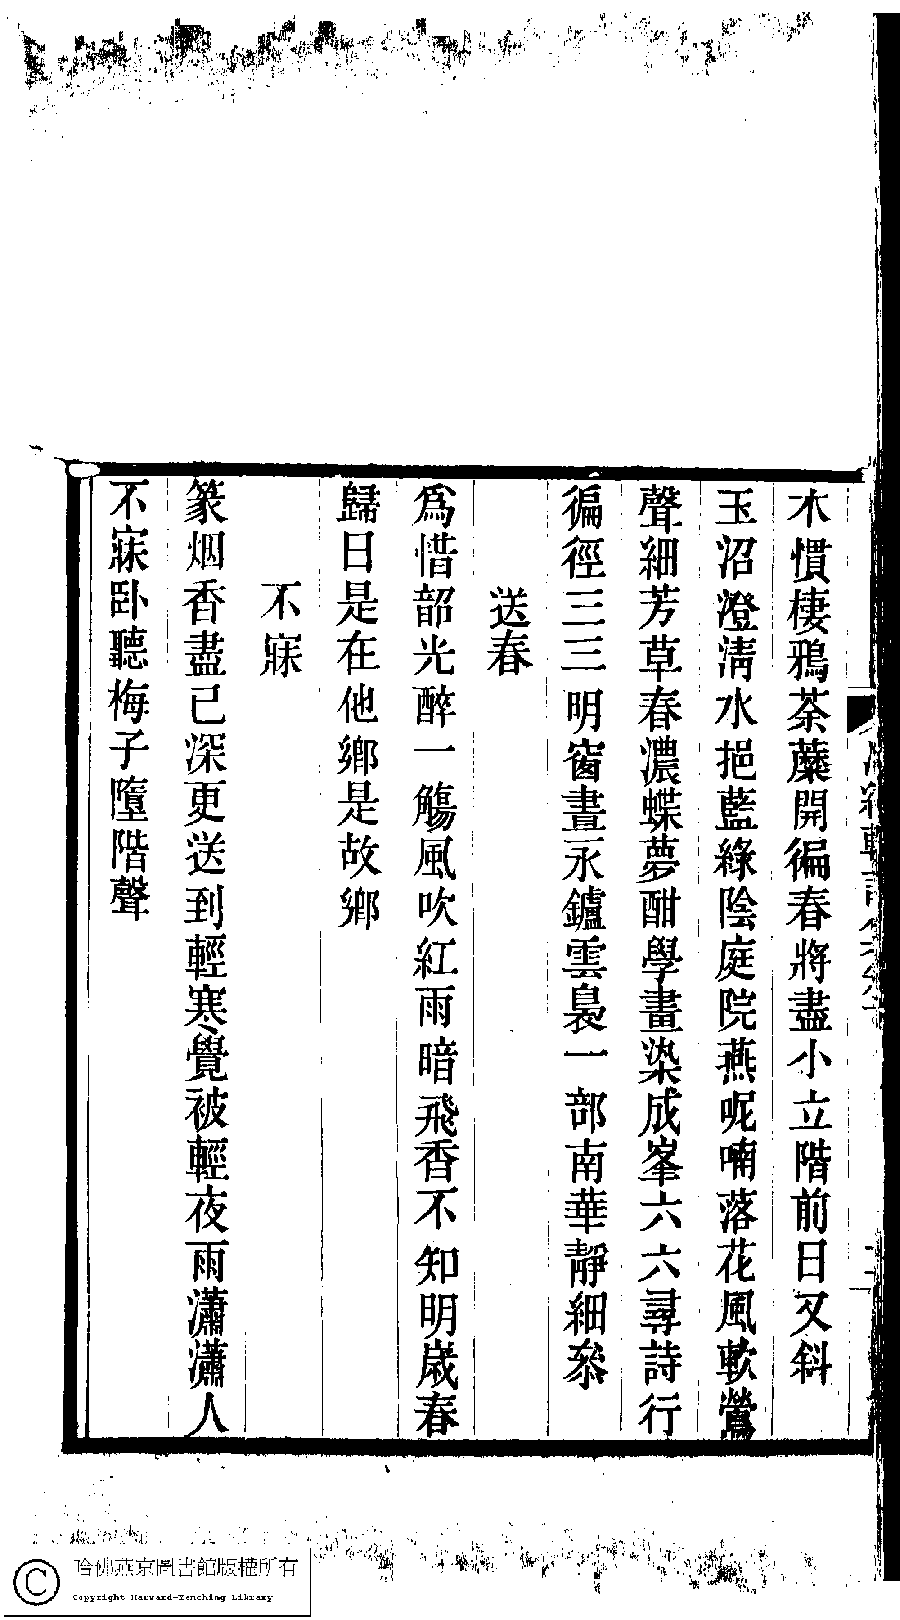 木慣棲鴉荼蘼開徧春將盡小立階前日又斜
玉沼澄淸水挹藍綠陰庭院燕呢喃落花風軟鶯
聲細芳草春濃蝶夢酣學畫染成峯六六尋詩行
徧徑三三明窗晝永鑪雲裊一部南華靜細叅
送春
爲惜韶光醉一觴風吹紅雨暗飛香不知明歲春
歸日是在他鄉是故鄉
不寐
篆烟香盡已深更送到輕寒覺被輕夜雨瀟瀟人
不寐卧聽梅子墮階聲
哈佛燕京圖書館版權所有
Copyright Harvard-Yenching Library